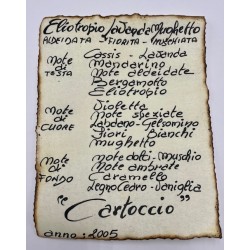 Eliotropio Lavanda Mughetto
ALDEIDATA FIORITA - MUSCHIATA
Note di TESTA
Cassis - Lavanda
Mandarino
Note aldeidate
Bergamotto
Eliotropio
Note di CUORE
Violetta
Note speziate
Labdano - Gelsomino
Fiori Bianchi
Mughetto
Note di FONDO
Note dolci - Muschio
Note ambrate
Caramello
Legno Cedro - Vaniglia
"Cartoccio"
anno: 2005